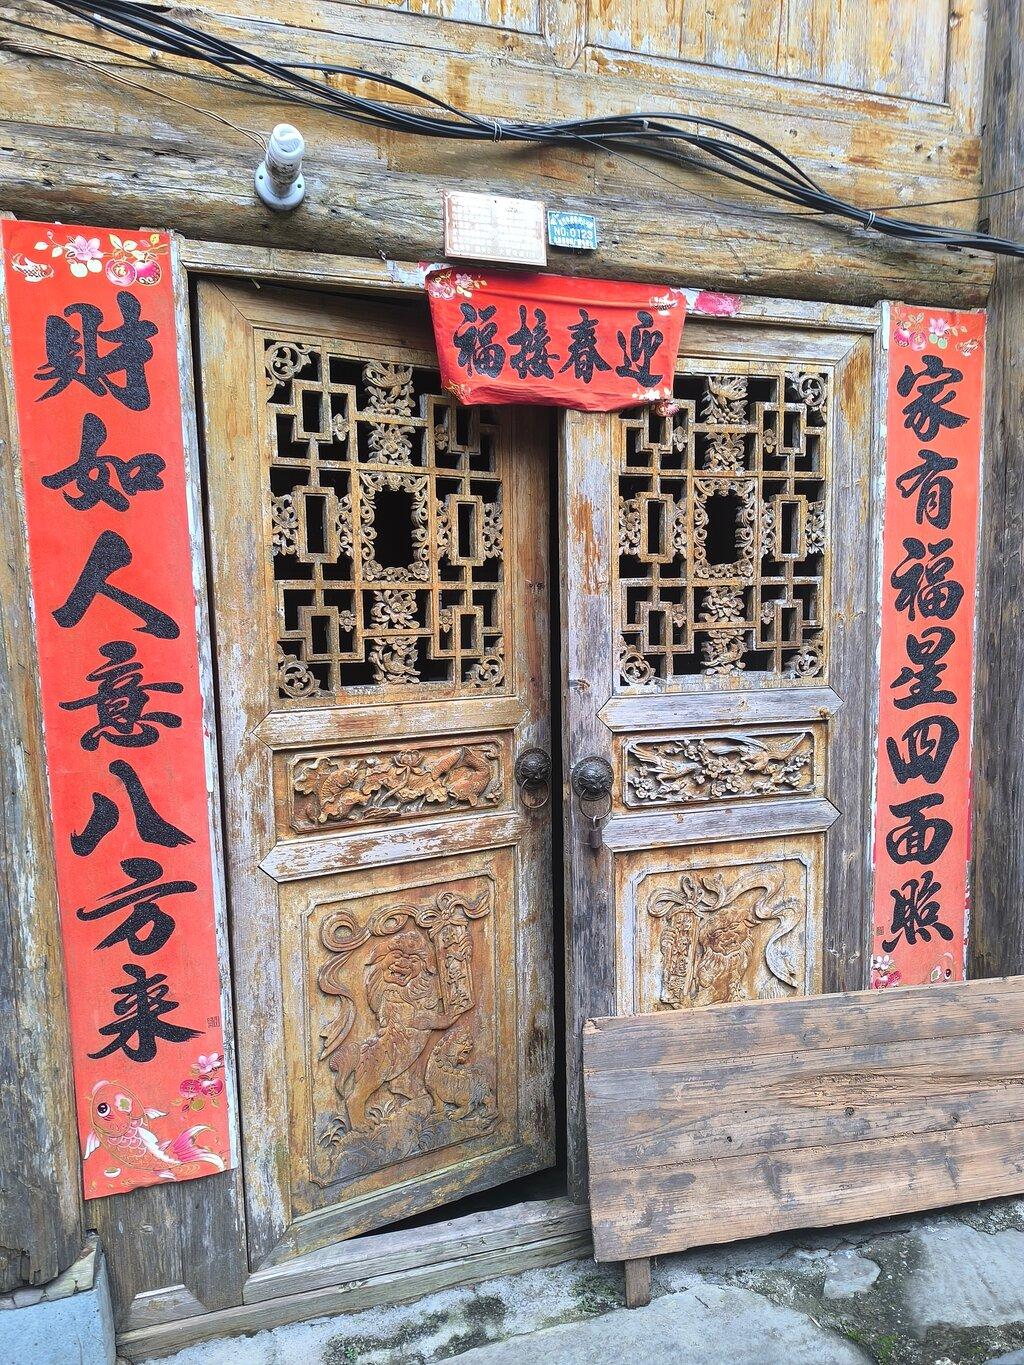 福接春迎
家有福星四面照
財如人意八方来
NO:0123